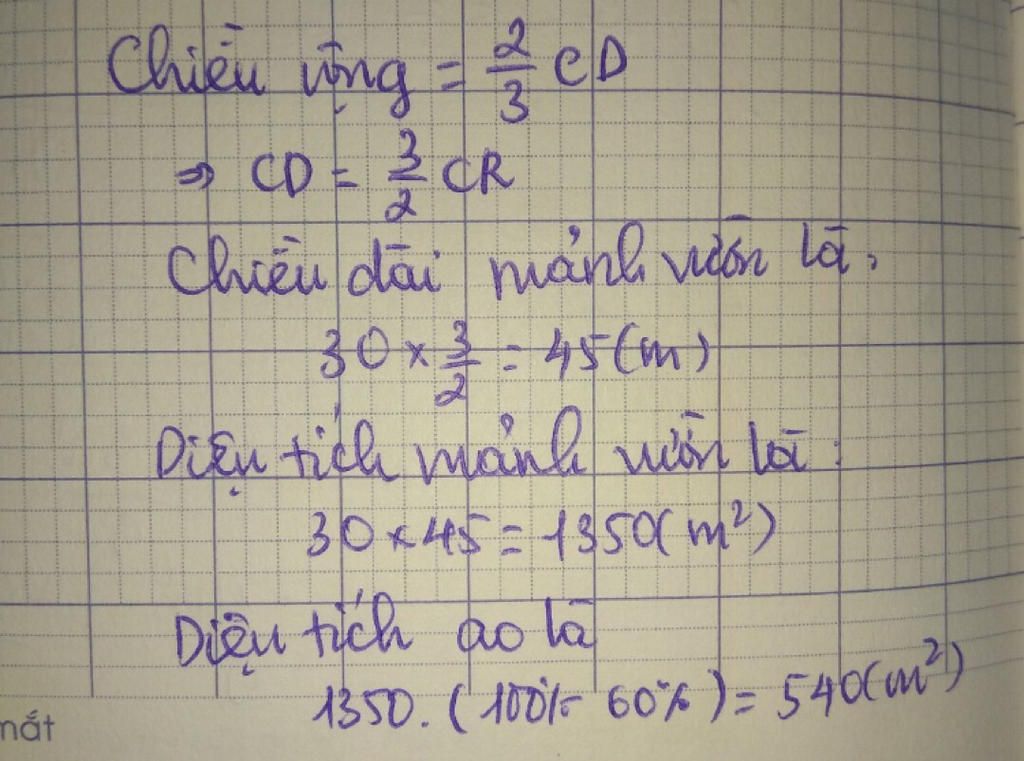 Chiều rộng = 2/3 CD
⇒ CD = 3/2 CR
Chiều dài mảnh vườn là:
30 × 3/2 = 45(m)
Diện tích mảnh vườn là:
30 × 45 = 1350(m²)
Diện tích ao là
1350. (100% - 60%) = 540(m²)
mắt